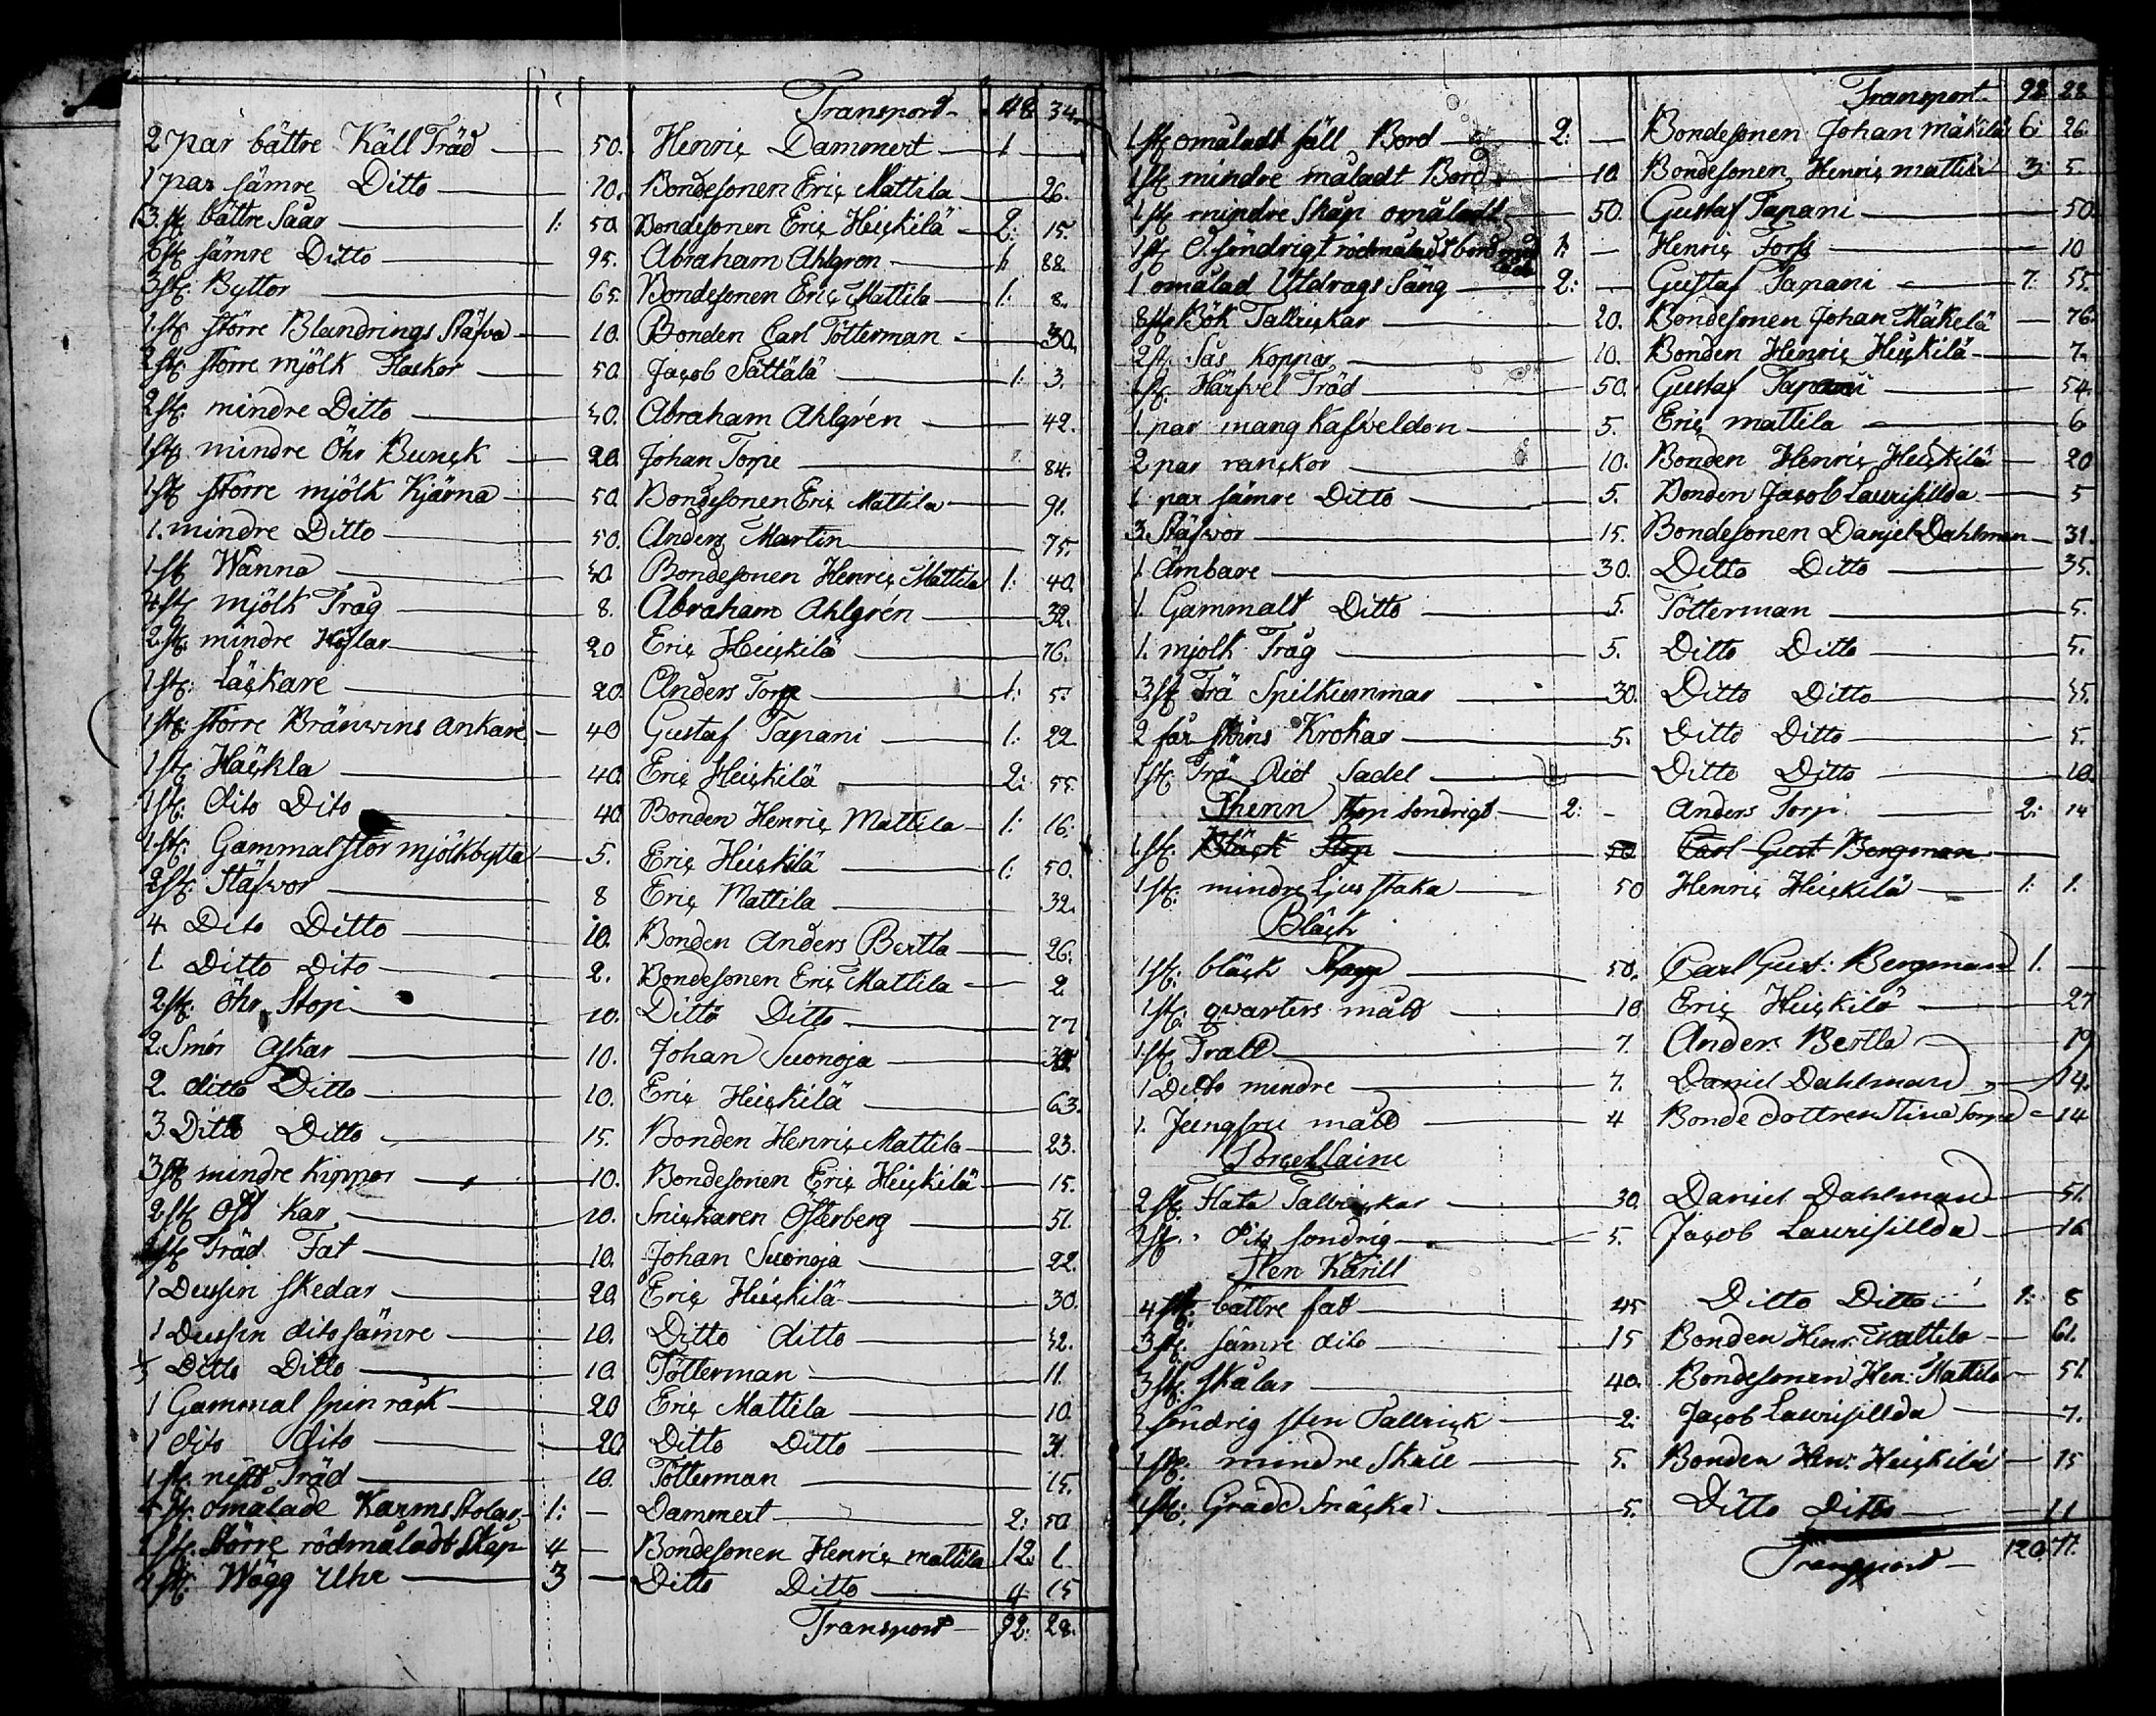 Transport 48 34.
2 par bättre Käll Träd 50. Henric Dammert 1
1 par sämre Ditto 10. Bondesonen Eric Mattila 26.
3 st. bättre Såar 1: 50 Bondesonen Eric Heickilä 2: 15.
6 st. sämre Ditto 95. Abraham Ahlgren 1 88.
3 st. Byttor 65. Bondesonen Eric Mattila 1: 8.
1. st. större Blandnings Stäfva 10. Bonden Carl Tötterman 30.
2 st. större mjölk Flaskor 50 Jacob Sättälä 1: 3.
2 st. mindre Ditto 50. Abraham Ahlgrén 42.
1 st. mindre Öhr Bunck 20 Johan Torpe 84.
1 st. större mjölk Kjärna 50. Bondesonen Eric Mattila 91.
1. mindre Ditto 50. Anders Martin 75.
1 st. Wanna 50. Bondesonen Henric Mattila 1: 40.
4 st. mjölk Tråg 8. Abraham Ahlgrén 32.
2 st. mindre 20 Eric Heickilä 76.
1 st. Läckare 20. Anders Torpe 1: 5.
1 st. större Bränwins ankare 40 Gustaf Tapani 1: 22
1 st. Häckla 40. Eric Heickilä 2: 55.
1 st. dito Dito 40 Bonden Henric Mattila 1: 16.
1 st. Gammal stor mjölkbytta 5. Eric Heickilä 1: 50.
2 st. Stäfvor 8 Eric Mattila 32.
4. Dito Ditto 10. Bonden Anders Bertla 26.
1. Ditto Dito 2. Bondesonen Eric Mattila 2
2 st. Öhr Stop 10. Ditto Ditto 77
2. Smör Askar 10. Johan Suonoja
2. ditto Ditto 10. Eric Heickilä 63.
3. Ditto Ditto 15. Bonden Henric Mattila 23.
3 st. mindre Kippor 10. Bondesonen Eric Heickilä 15.
2 st. Ost Kar 10. Snickaren Österberg 51.
st. Träd Fat 10. Johan Suonoja 22
1 Dussin skedar 20 Eric Heickilä 30.
1 Dussin dito sämre 10. Ditto ditto 32.
Ditto Ditto 10. Tötterman 11.
1 Gammal spin råck 20 Eric Mattila 10
1 dito dito 20 Ditto Ditto 31.
1 st. Träd 10. Tötterman 15.
st. omålade Karms Stolar 1: — Dammert 2: 50
1 st. Större rödmåladt Skåp 4 — Bondesonen Henric mattila 12. 1.
1 st. Wägg Uhr 3 — Ditto Ditto 4 15
Transport 92: 28.
Transport 92 28
1 st. omåladt fäll Bord 2: — Bondesonen Johan Mäkilä 6: 26.
1 st. mindre måladt Bord 10 Bondesonen Henric mattila 3: 5.
1 st. mindre Skåp omåladt 50. Gustaf Tapani 50
1 st. Söndrigt rödmåladt bord 1: — Henric Forss 10
1 omålad Utdrags Säng 2: — Gustaf Tapani 7: 55.
8 st. Bök Tallrickar 20. Bondesonen Johan Mäkelä 76.
2 st. Sås Koppar 10. Bonden Henric Heickilä 7.
st. Härfvel Träd 50. Gustaf Tapani 54.
1. par mang Kafweldon 5. Eric mattila 6
2 par ranckor 10. Bonden Henric Heickilä 20
1 par sämre Ditto 5. Bonden Jacob Laurisillda 5
3. Stäfwor 15. Bondesonen Danjel Dahlman 31.
1. Ämbare 30. Ditto Ditto 35.
1. Gammalt Ditto 5. Tötterman 5.
1. mjolk Tråg 5. Ditto Ditto 5.
3 st. Trä Spilkummar 30. Ditto Ditto 35.
2 får skins Krokar 5. Ditto Ditto 5.
1 st. Trä Rid Sadel Ditto Ditto 10.
Thenn Stop sondrigt 2: — Anders Torpi 2: 14
1 st. Bläck Stop 50 Carl Gust Bergman
1 st. mindre Ljus staka 50 Henric Heickilä 1: 1.
Bläck
1 st. bläck Stopp 50. Carl Gust: Bergman 1. —
1 st. qwarters mått 10 Eric Heickilä 27
1 st. Tratt 7. Anders Bertla 19
1 Ditto mindre 7. Daniel Dahlman 14.
1. Jungfru mått 4 Bonde dottren Stina Torpa 14
Porcellaine
2 st. Flata Tallrickar 30. Daniel Dahlman 51.
1 st. dito sondrig 5. Jacob Laurisillda 16
Sten Kärill
4 st. bättre fat 45 Ditto Ditto 1: 8
3 st. sämre dito 15 Bonden Henr: Mattila 61.
3 st. skålar 40. Bondesonen Hen: Mattila 51.
1 söndrig sten Tallrick 2: Jacob Laurisillda 7.
1 st. mindre Skåll 5. Bonden Hen: Heickilä 15
1 st. Grädd Snäcka 5. Ditto Ditto 11
Transport 120: 71.